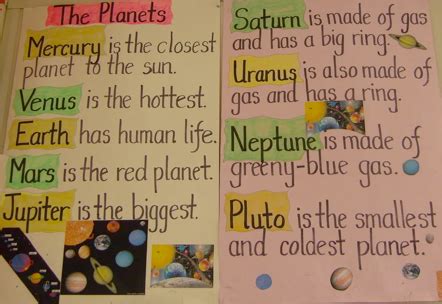 The Planets
Mercury is the closest
planet to the sun.
Venus is the hottest.
Earth has human life.
Mars is the red planet.
Jupiter is the biggest.
Saturn is made of gas
and has a big ring.
Uranus is also made of
gas and has a ring.
Neptune is made of
greeny-blue gas.
Pluto is the smallest
and coldest planet.